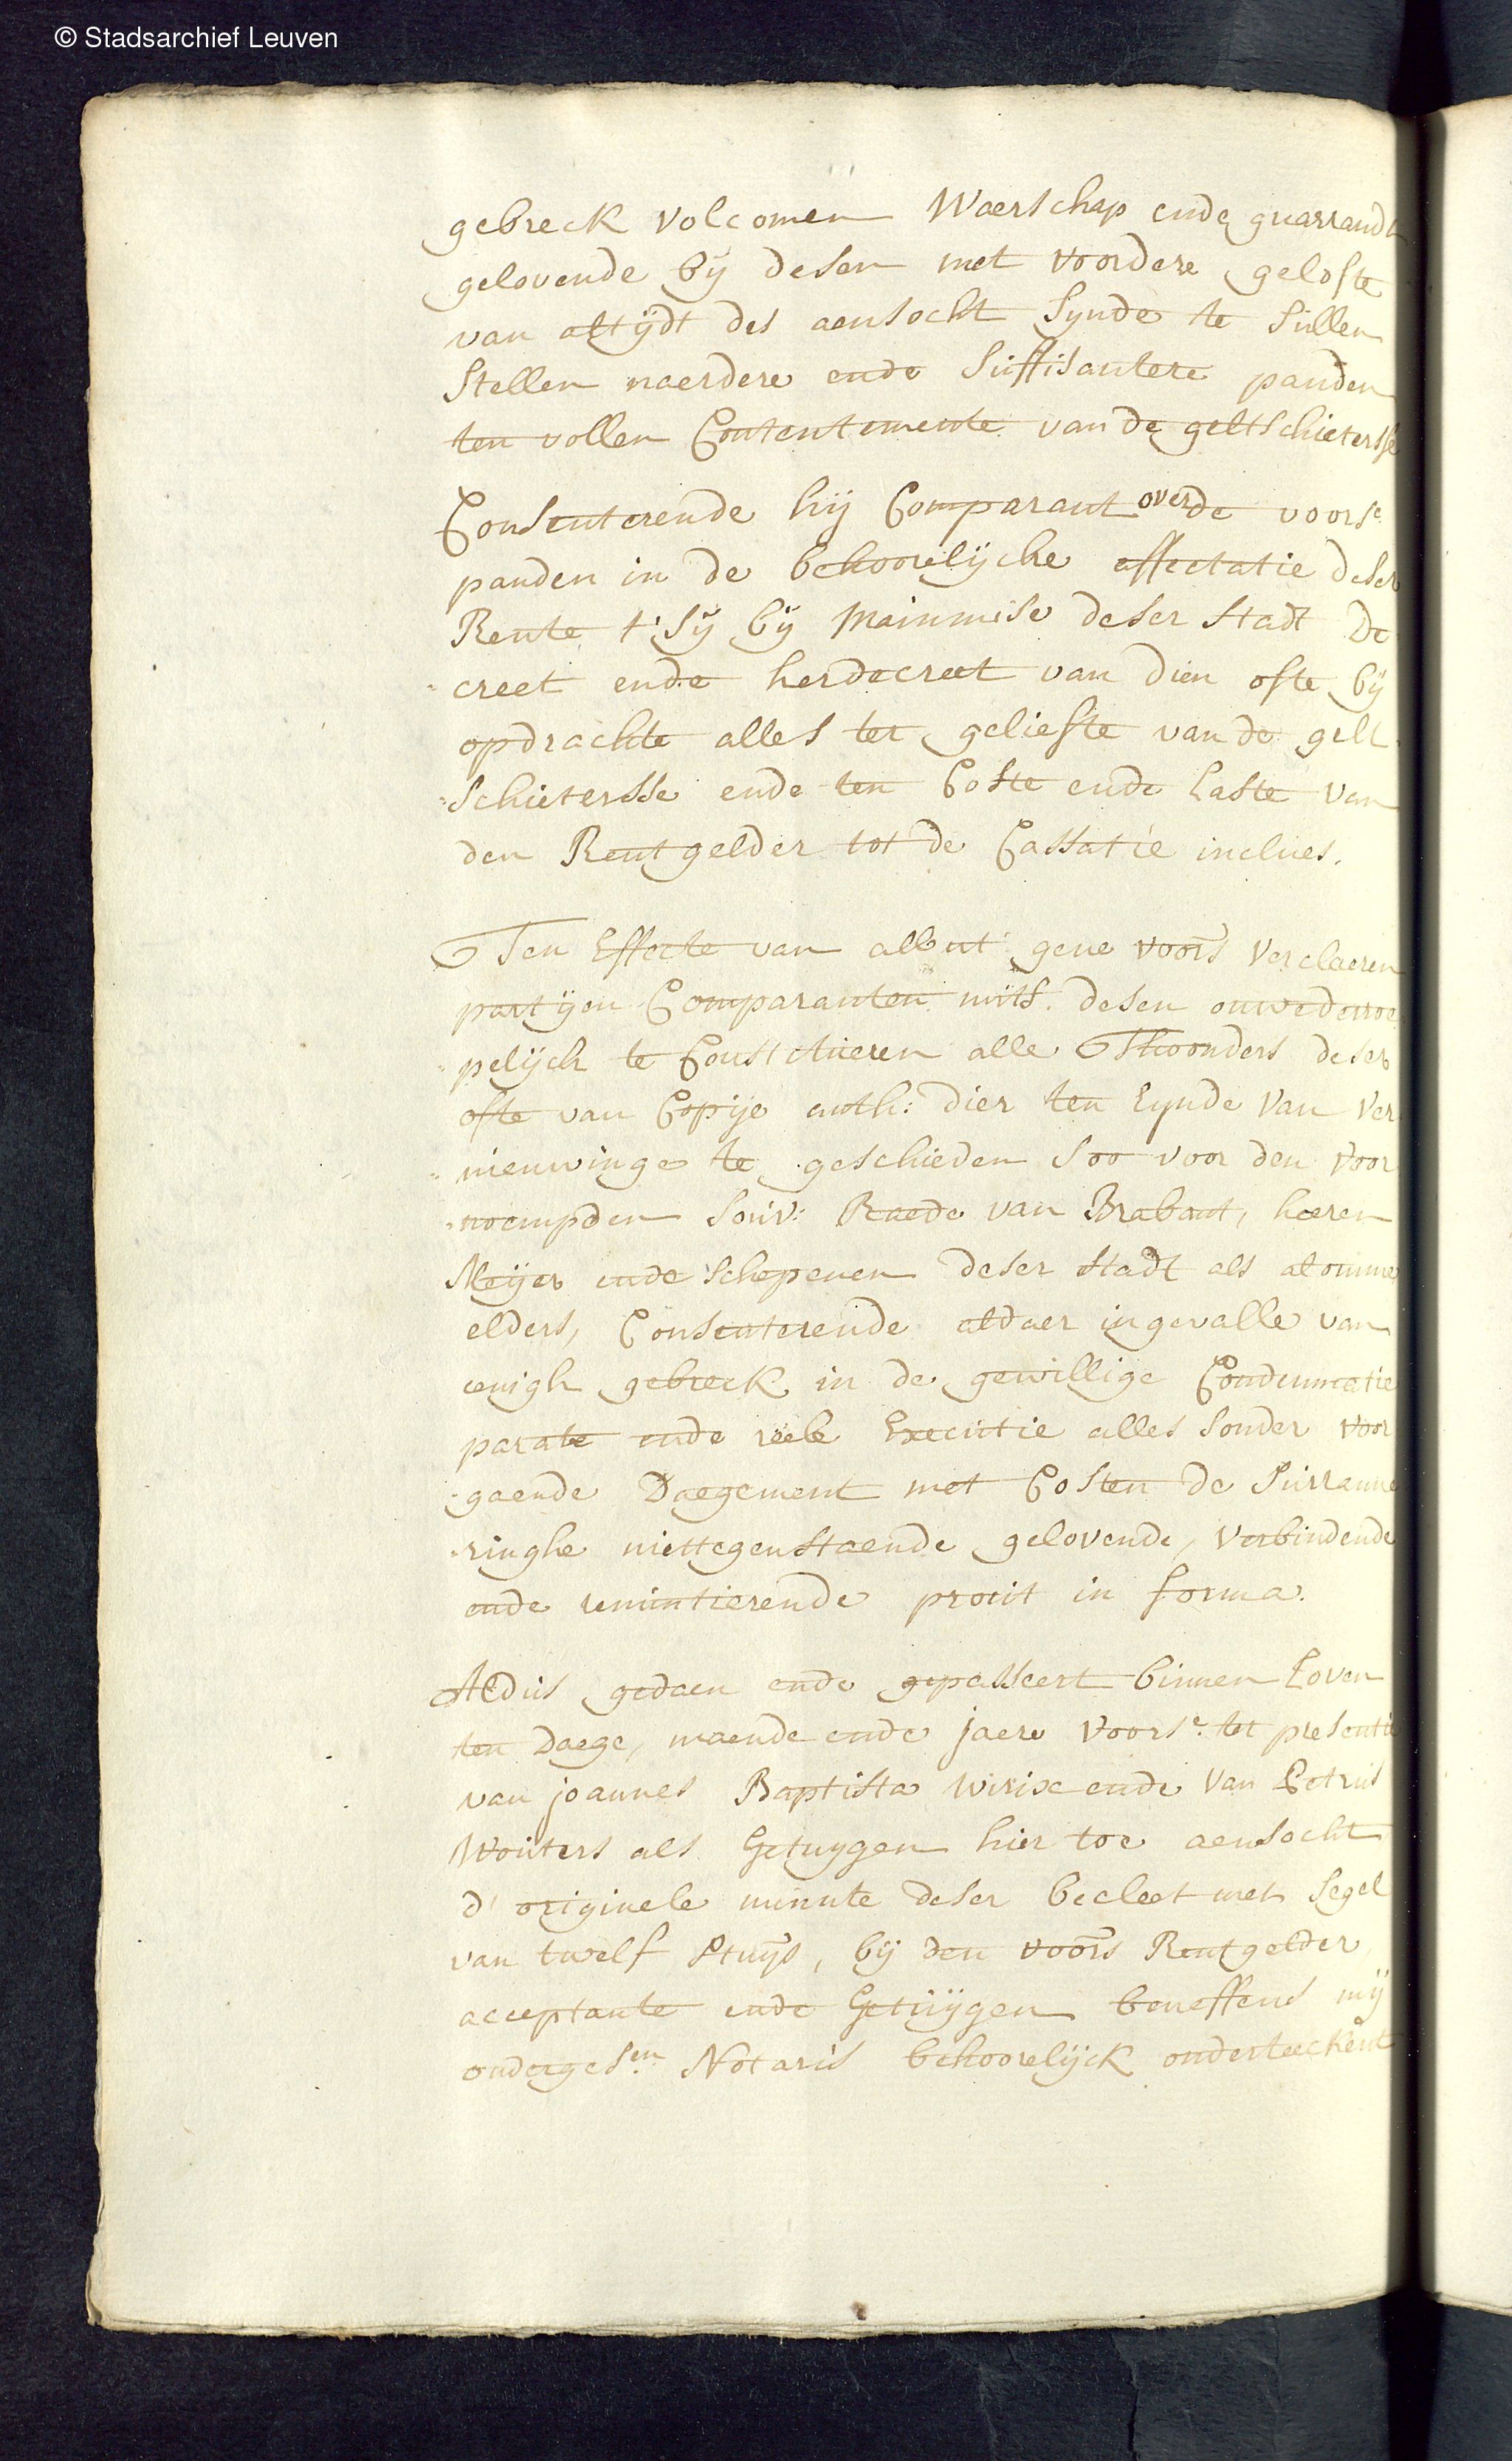 © Stadsarchief Leuven
gebreck volcomen Waerschap ende guarrandt
gelovende bÿ desen met voordere gelofte
van altÿdt des aensocht synde te sullen
stellen naerdere ende suffisantere panden
ten vollen Contentemente van de geltschietersse
Consenterende hÿ Comparant over de voorsc
panden in de behoorelÿcke affectatie deser
Rente t'sÿ bÿ mainmise deser stadt De
creet ende herdecreet van dien ofte bÿ
opdrachte alles ter geliefte van de gelt
schietersse ende ten Coste ende laste van
den Rentgelder tot de Cassatie inclues.
Ten Effecte van all'ut gene voors verclaeren
partÿen Comparanten mits desen onwederroe
pelÿck te Constitueren alle Thoonders deser
ofte van Copÿe auth: dier ten Eynde van ver
nieuwinge te geschieden soo voor den voor
noempden souv: Raede van Brabant, heeren
Meÿer ende schepenen deser stadt als alomme
elders, Consenterende aldaer ingevalle van
eenigh gebreck in de gewillige Condemnatie
parate ende reële Executie alles sonder voor
gaende Daegement met Costen de surranne
ringhe niettegenstaende gelovende, verbindende
ende renuntierende prout in forma.
Aldus gedaen ende gepasseert binnen Loven
ten Daege, maende ende jaere voorsc. ter presentie
van joannes Baptista wirix ende van Petrus
Wouters als Getuygen hier toe aensocht
d'originele minute deser becleet met segel
van twelf stuÿs, bÿ den voors Rentgelder
acceptante ende Getuÿgen beneffens mÿ
onderges.en Notaris behoorelÿck onderteeckent